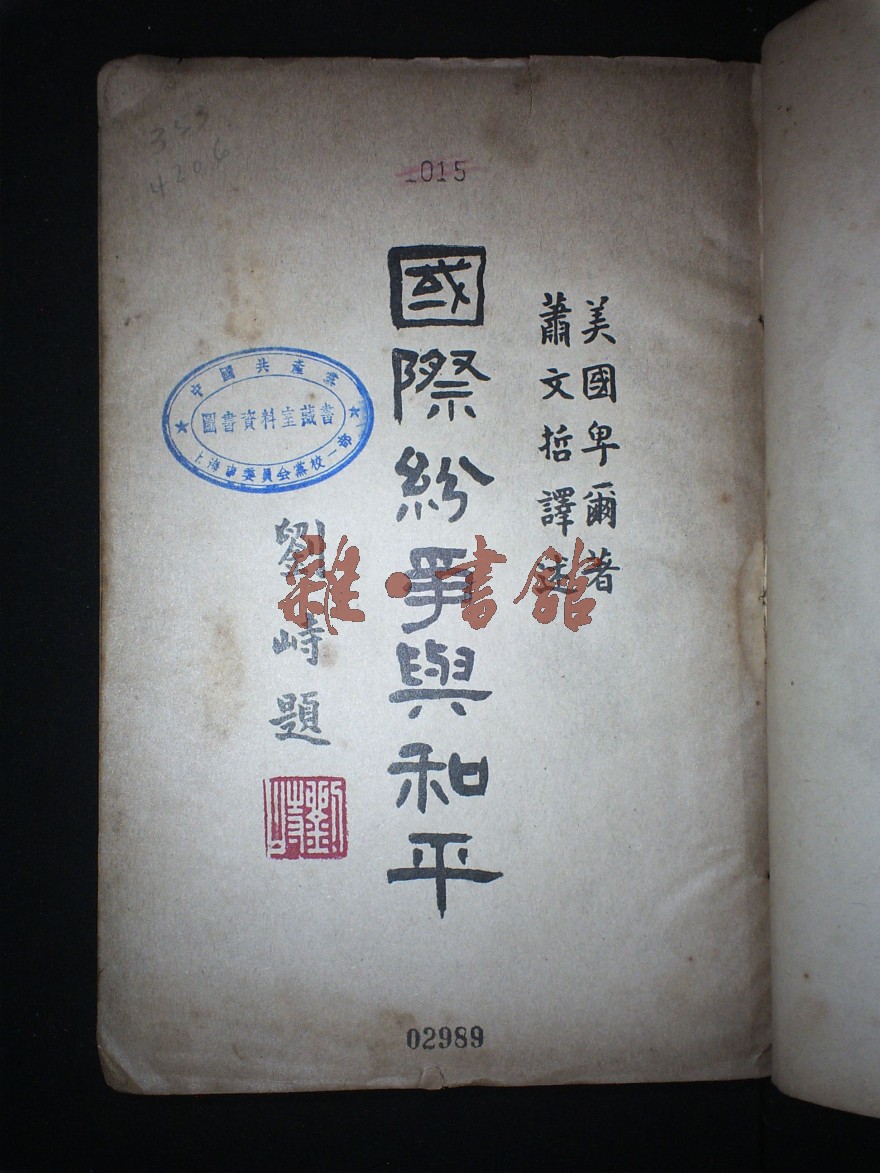 1015
美國卑爾著
蕭文哲譯述
國際紛爭與和平
劉峙題
劉峙
中國共產黨
圖書資料室藏書
上海市委員会黨校一部
雜·書館
02989